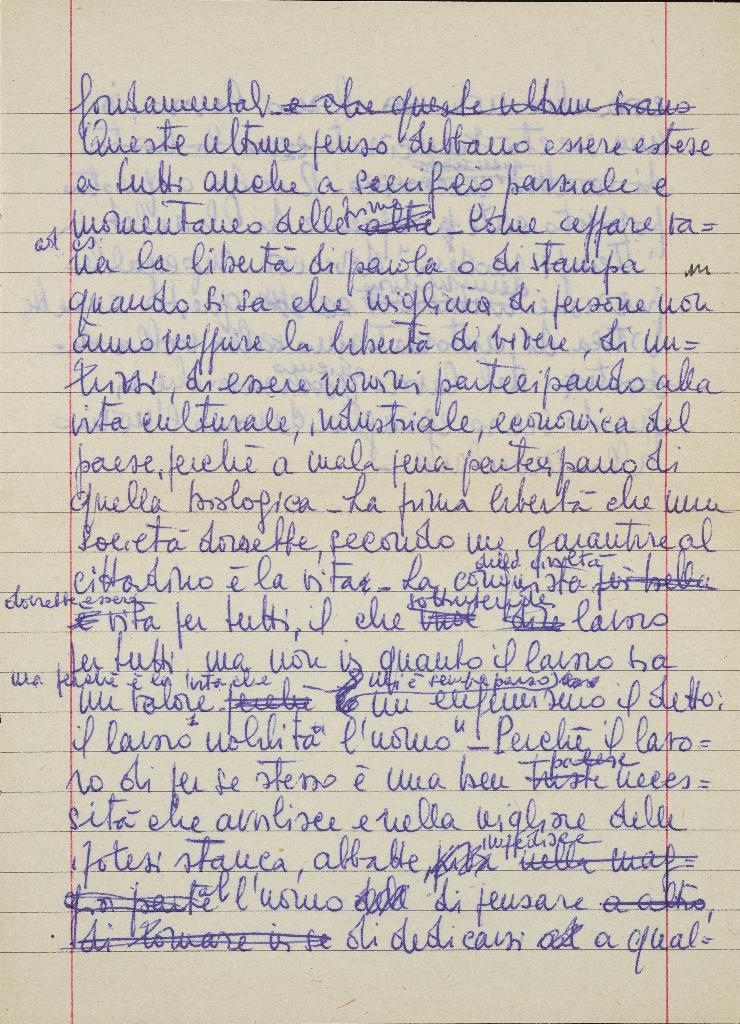 fondamentali e che queste ultime siano
Queste ultime penso debbano essere estese
a tutti anche a sacrificio parziale e
momentaneo delle prime altre - Come appare va=
na la libertà di parola o di stampa
quando si sa che migliaia di persone non
ànno neppure la libertà di vivere, di nu=
trirsi, di essere uomini partecipando alla
vita culturale, industriale, economica del
paese, perché a mala pena partecipano di
quella biologica - La prima libertà che una
società dovrebbe, secondo me, garantire al
cittadino è la vita - La conquista della civiltà più bella
dovrebbe essere è vita per tutti, il che sottintende dire lavoro
per tutti, ma non in quanto il lavoro sia
un valore ma perché è la vita che perché mi è sempre parso un eufemismo il detto:
il lavoro "nobilita" l'uomo" - Perché il lavo=
ro di per se stesso è una ben triste neces=
sità che avvilisce e nella migliore delle
ipotesi stanca, abbatte, impedisce nella mag=
gior parte l'uomo di pensare a altro,
di tornare in se di dedicarsi ad a qual=